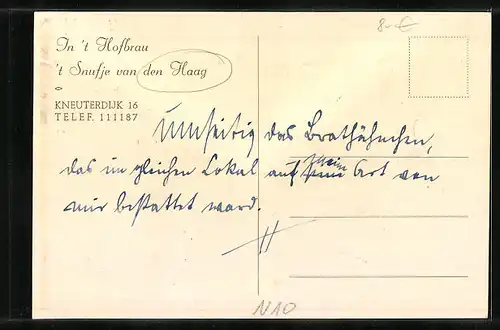 8.-€
In 't Hofbrau
't Snufje van den Haag
KNEUTERDIJK 16
TELEF. 111187
Umseitig das Brathähnchen,
das im gleichen Lokal auf Art von
mir bestattet ward.
N10